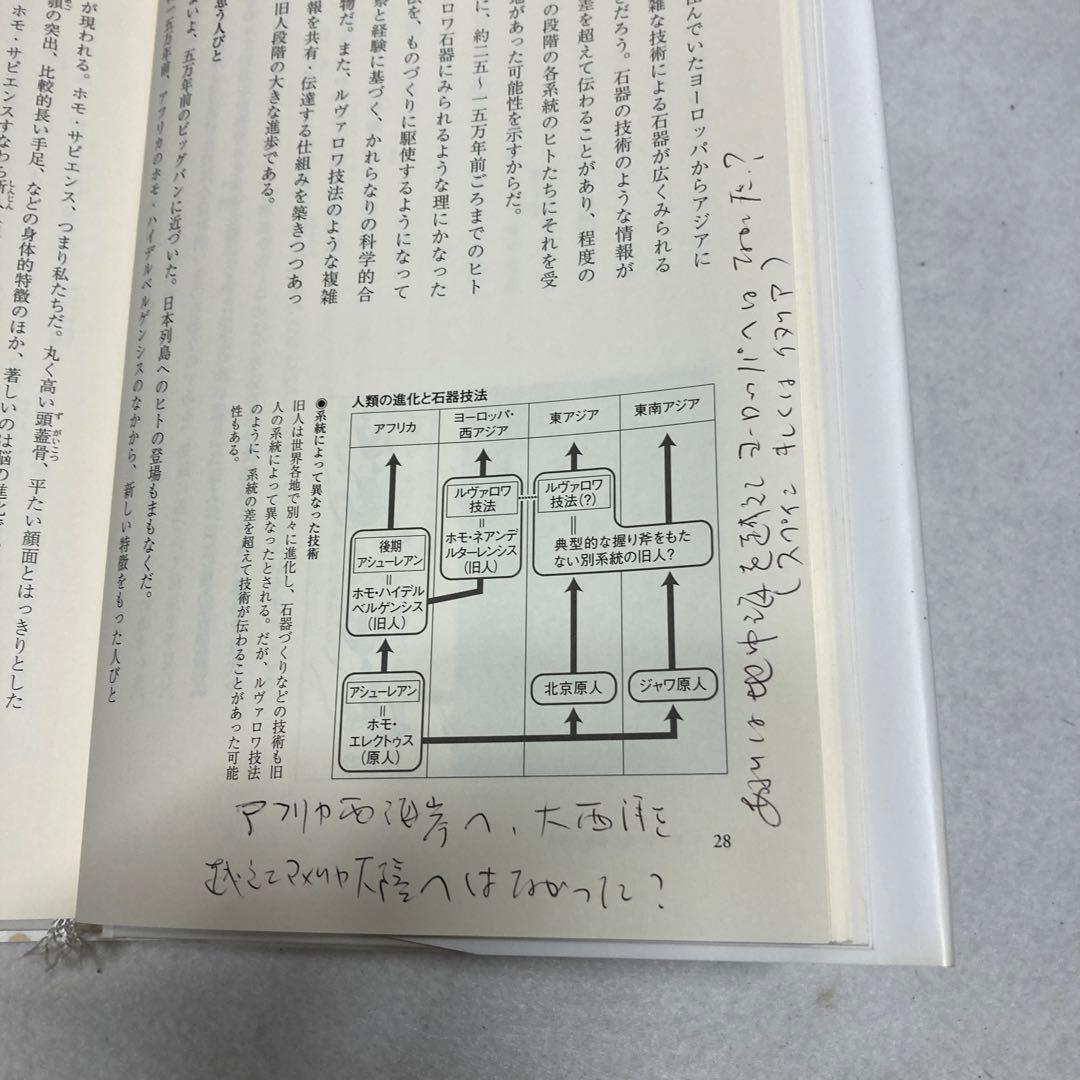 住んでいたヨーロッパからアジアに
雑な技術による石器が広くみられる
だろう。石器の技術のような情報が
差を超えて伝わることがあり、程度の
の段階の各系統のヒトたちにそれを受
地があった可能性を示すからだ。
に、約二五〜一五万年前ごろまでのヒト
ロワ石器にみられるような理にかなった
法を、ものづくりに駆使するようになって
察と経験に基づく、かれらなりの科学的合
物だ。また、ルヴァロワ技法のような複雑
報を共有・伝達する仕組みを築きつつあっ
旧人段階の大きな進歩である。
思う人びと
よいよ、五万年前のビッグバンに近づいた。日本列島へのヒトの登場もまもなくだ。
五万年前、アフリカのホモ・ハイデルベルゲンシスのなかから、新しい特徴をもった人びと
が現われる。ホモ・サピエンス、つまり私たちだ。丸く高い頭蓋骨、平たい顔面とはっきりとした
ずがいこつ
顎の突出、比較的長い手足、などの身体的特徴のほか、著しいのは脳の進化で
ホモ・サピエンスすなわち新人
しんじん
人類の進化と石器技法
アフリカ
ヨーロッパ・
西アジア
東アジア
東南アジア
ルヴァロワ
技法
=
ホモ・ネアンデ
ルターレンシス
(旧人)
ルヴァロワ
技法(?)
=
典型的な握り斧をもた
ない別系統の旧人?
後期
アシューレアン
=
ホモ・ハイデル
ベルゲンシス
(旧人)
アシューレアン
=
ホモ・
エレクトゥス
(原人)
北京原人
ジャワ原人
◉系統によって異なった技術
旧人は世界各地で別々に進化し、石器づくりなどの技術も旧
人の系統によって異なったとされる。だが、ルヴァロワ技法
のように、系統の差を超えて技術が伝わることがあった可能
性もある。
あるいは地中海を越えてヨーロッパへは
(スペイン もしくは イタリア)
アフリカ西海岸へ、大西洋を
越えてアメリカ大陸へはなかった?
28